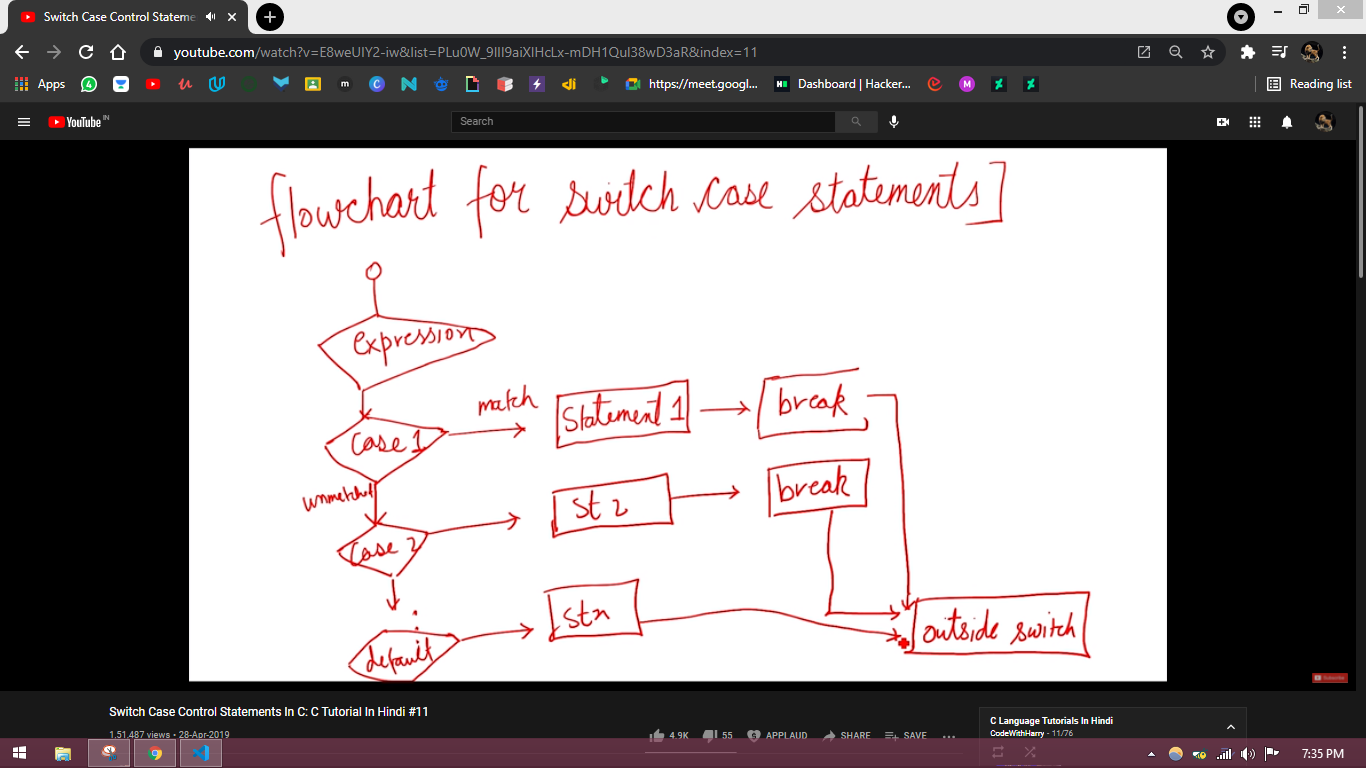 Switch Case Control Stateme
youtube.com/watch?v=E8weUlY2-iw&list=PLu0W_9lII9aiXlHcLx-mDH1Qul38wD3aR&index=11
Apps
https://meet.googl...
Dashboard | Hacker...
Reading list
YouTube IN
Search
flowchart for switch case statements]
expression
match
Statement 1
break
Case 1
unmatched
St 2
break
Case 2
Stn
outside switch
default
Subscribe
Switch Case Control Statements In C: C Tutorial In Hindi #11
1,51,487 views • 28-Apr-2019
4.9K
55
APPLAUD
SHARE
SAVE
C Language Tutorials In Hindi
CodeWithHarry - 11/76
7:35 PM